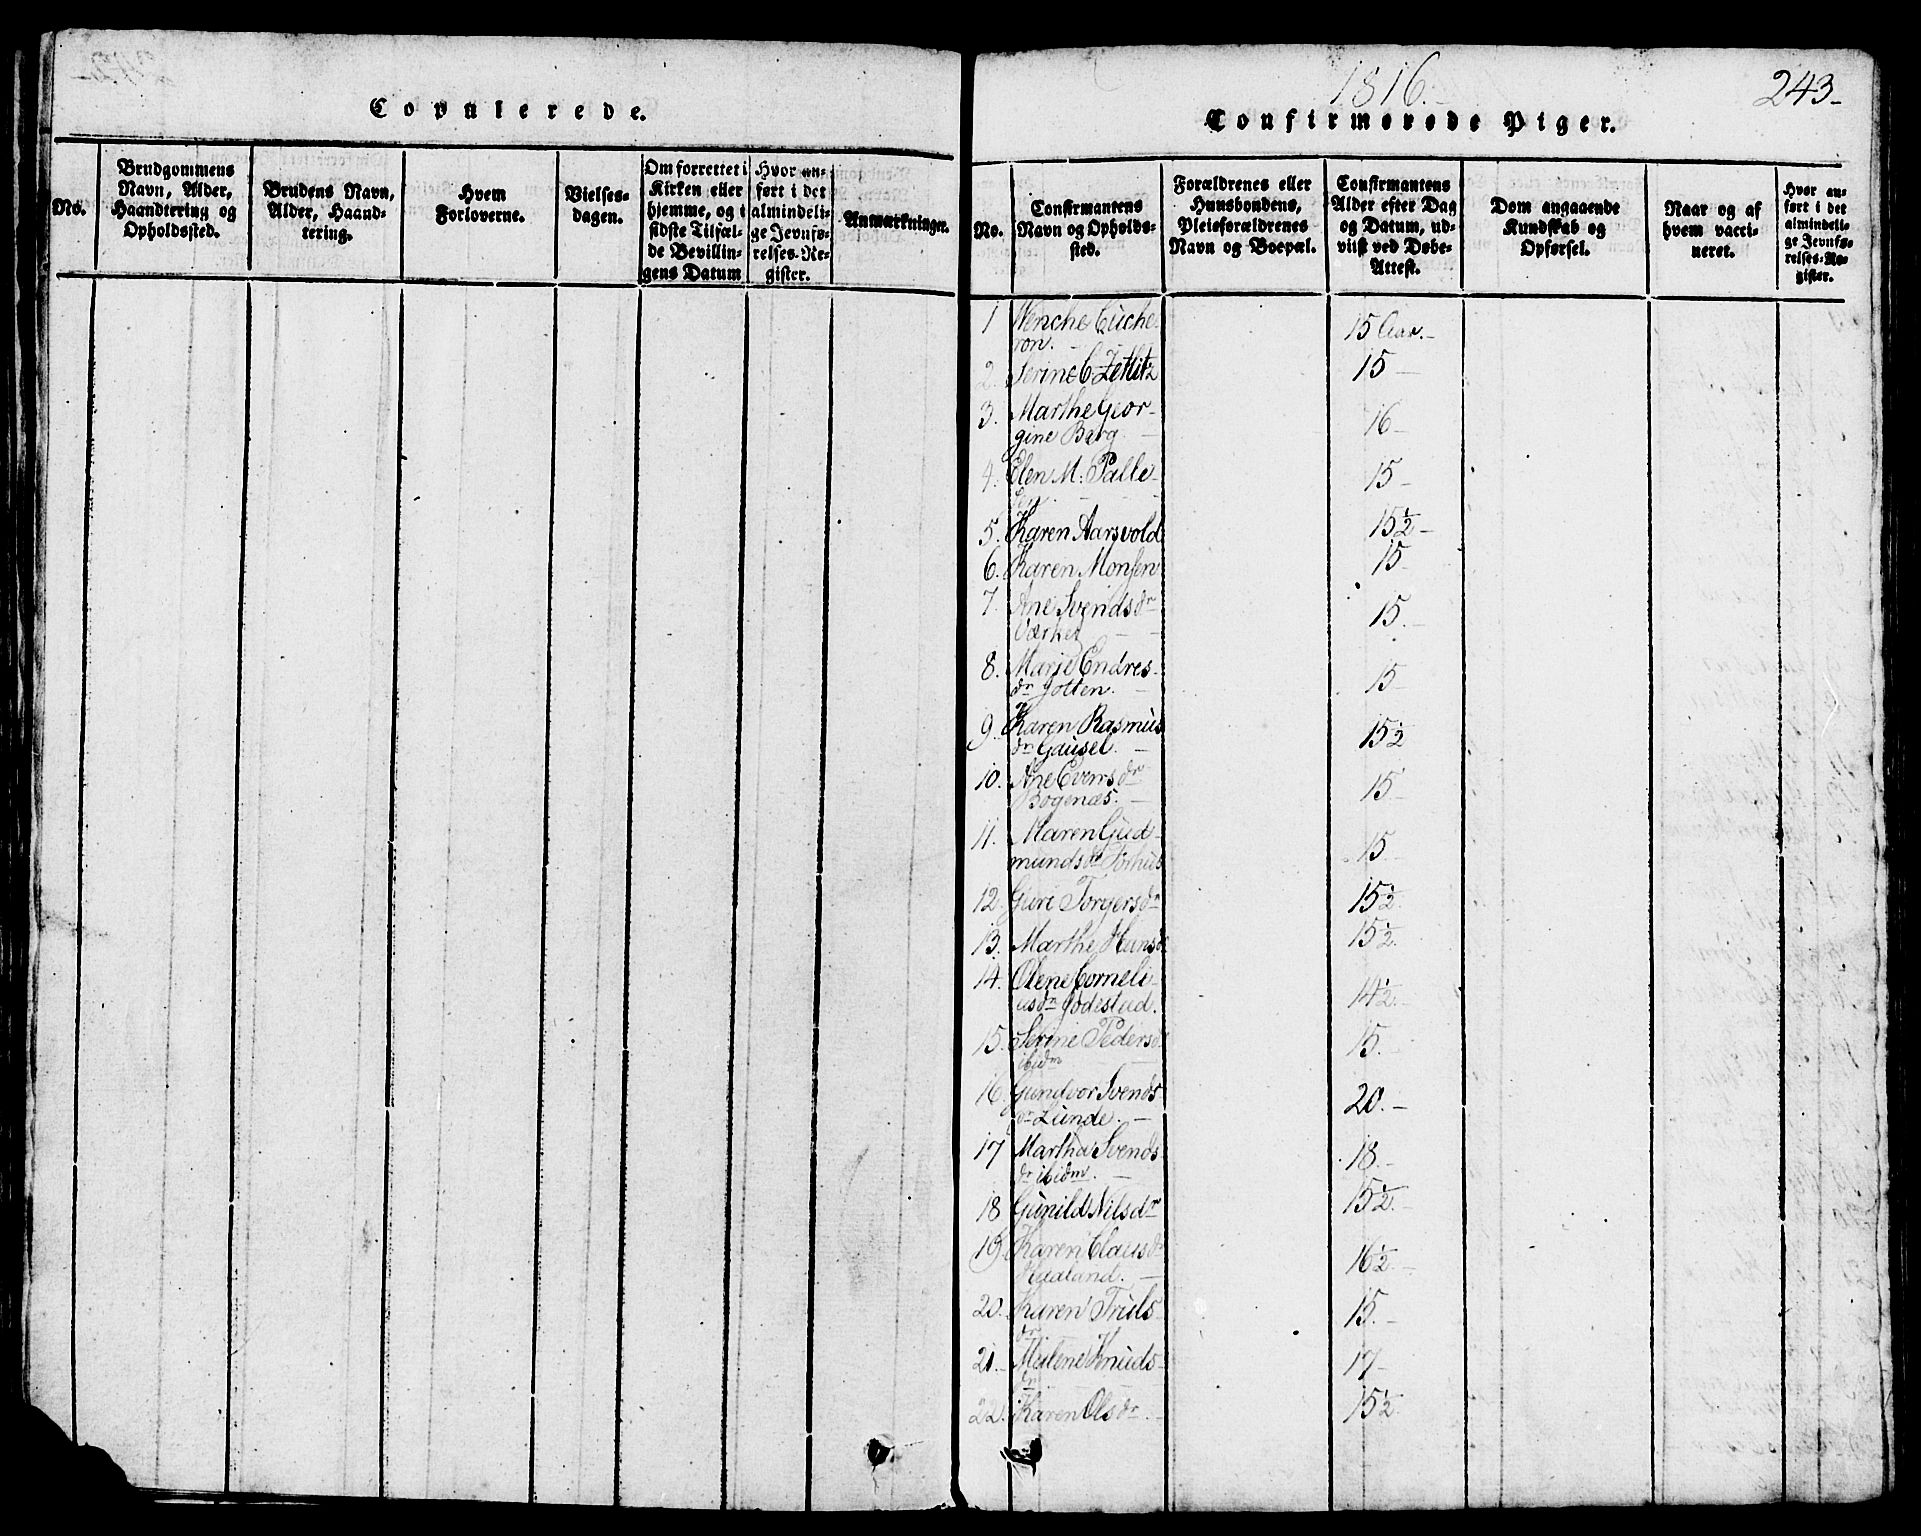 Copulerede.
No.
Brudgommens
Navn, Alder,
Haandtering og
Opholdssted.
Brudens Navn,
Alder, Haand-
tering.
Hvem
Forloverne.
Vielses-
dagen.
Om forrettet i
Kirken eller
hjemme, og i
sidste Tilfæl-
de Bevillin-
gens Datum
Hvor an-
ført i det
almindeli-
ge Jevnfø-
relses-Re-
gister.
Anmærkninger.
1816.-
243-
Confirmerede Piger.
No.
Confirmantens
Navn og Opholds-
sted.
Forældrenes eller
Huusbondens,
Pleieforældrenes
Navn og Boepæl.
Confirmantens
Alder efter Dag
og Datum, ud-
viist ved Døbe-
Attest.
Dom angaaende
Kundskab og
Opførsel.
Naar og af
hvem vacci-
neret.
Hvor an-
ført i det
almindeli-
ge Jevnfø-
relses-Re-
gister.
1 Wenche Euche 15 Aar.-
ron.
2. Serine C Zetlitz 15-
3. Marthe Geor- 16-
gine Barg.
4. Elen M: Palle- 15-
sen.
5. Karen Aarsvold 15½-
6. Karen Monsen 15-
7. Ane Svendsdr 15.-
8. Marie Endres- 15-
dr Jotten.
9. Karen Rasmus 15½
dr Gausel.
10. Ane Evensdr 15-
Bogenæs.
11. Maren Gud- 15-
mundsdr
12. Guri Torgersdr 15½.
13. Marthe Hansd 15½.
14. Olene Corneli- 14½.-
usdr Jødestad.
15. Serine Pedersd 15.-
ibidm
16. Gundvor Svends 20.-
dr Lunde.
17 Martha Svends 18.-
dr ibidm.
18 Gunild Nilsdr 15½.-
19. Karen Clausdr 16½.-
Haaland.
20. Karen Truls- 15.-
dr
21.- Malene Knuds- 17-
dr
22. Karen Olsdr. 15½.